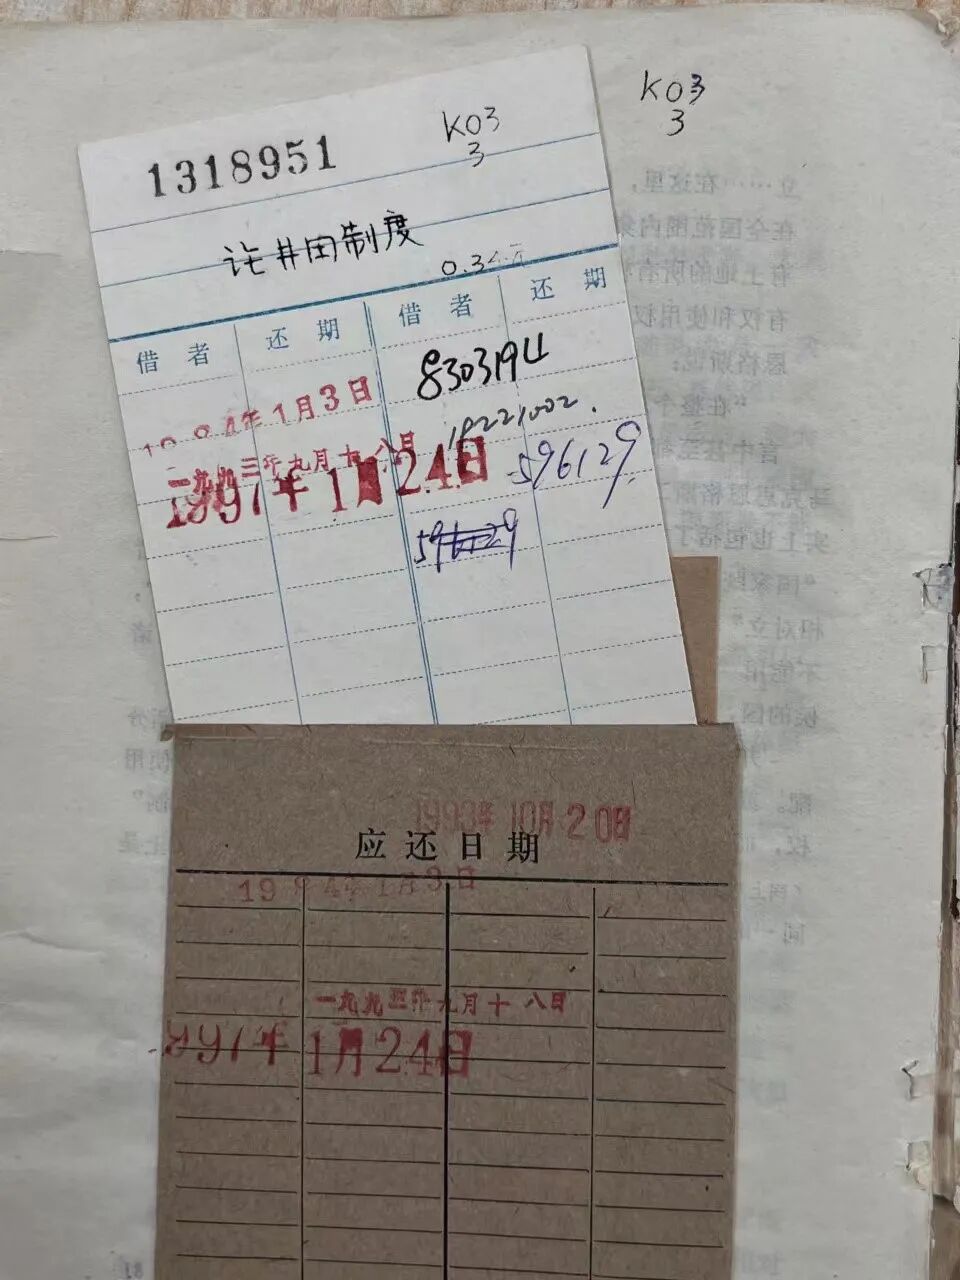 K03
3
1318951
K03
3
论井田制度
借者 还期 借者 还期
1984年1月3日
8303194
一九九三年九月十八日
18221002.
1997年1月24日
596129
596129
1993年10月20日
应还日期
1984年1月3日
一九九三年九月十八日
1997年1月24日